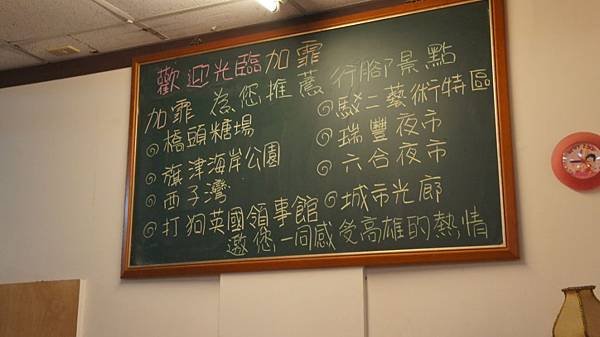 歡迎光臨加霏
加霏為您推薦行腳景點
橋頭糖場
旗津海岸公園
西子灣
打狗英國領事館
駁二藝術特區
瑞豐夜市
六合夜市
城市光廊
邀您一同感受高雄的熱情